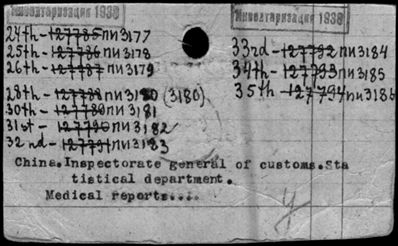 Инвентаризация 1938
24th-127785 пи3177
25th-127786 пи3178
26th-127787 пи3179
28th-127788 пи3180 (3180)
30th-127789 пи3181
31st-127790 пи3182
32nd-127791 пи3183
Инвентаризация 1938
33rd-127792 пи3184
34th-127793 пи3185
35th-127794 пи3186
China.Inspectorate general of customs.Sta
tistical department.
Medical reports....